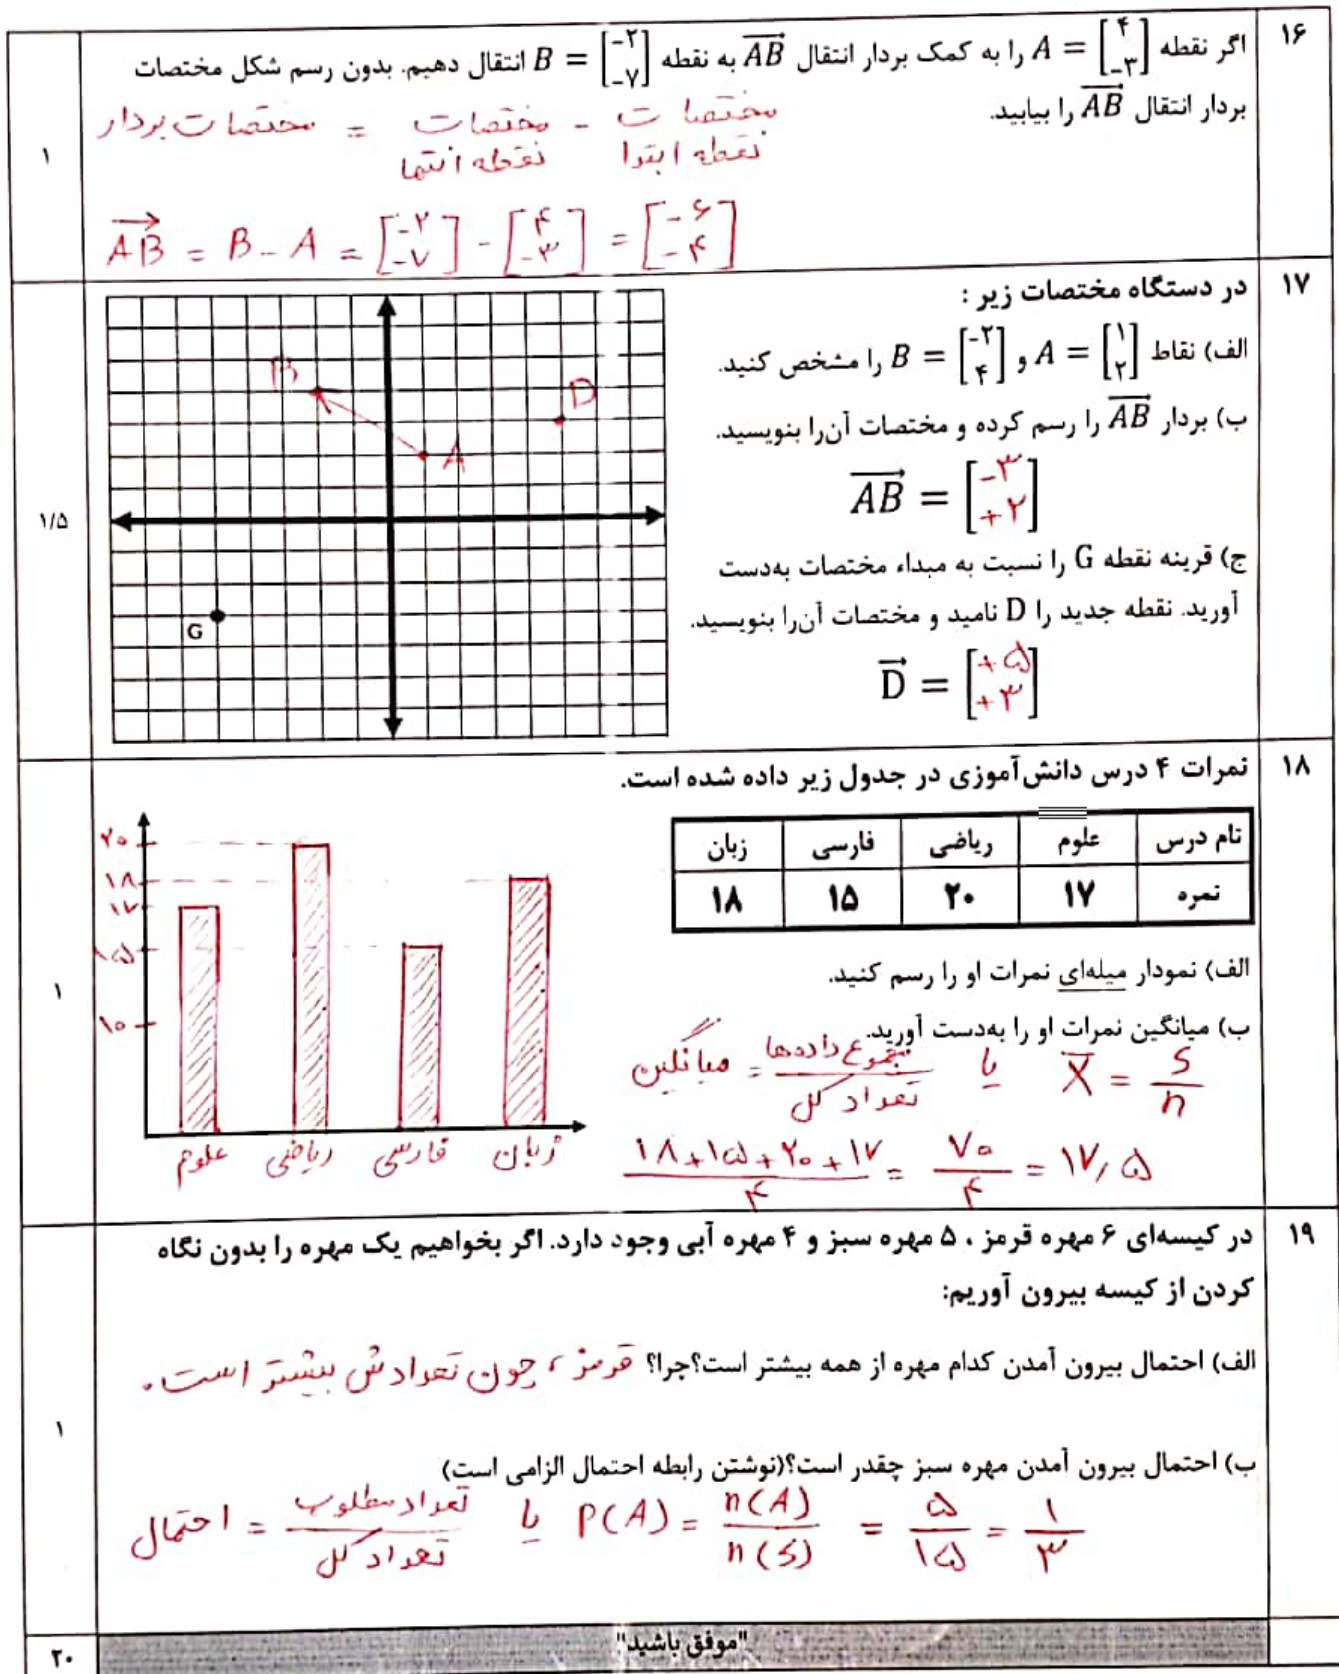 ۱۶
اگر نقطه A = [۴ −۳] را به کمک بردار انتقال AB به نقطه B = [−۲ −۷] انتقال دهیم. بدون رسم شکل مختصات
بردار انتقال AB را بیابید.
مختصات نقطه ابتدا - مختصات نقطه انتها = مختصات بردار
AB = B - A = [−۲ −۷] - [۴ −۳] = [−۶ −۴]
۱
۱۷
در دستگاه مختصات زیر :
الف) نقاط A = [۱ ۲] و B = [−۲ ۴] را مشخص کنید.
ب) بردار AB را رسم کرده و مختصات آن‌را بنویسید.
AB = [−۳ +۲]
ج) قرینه نقطه G را نسبت به مبداء مختصات به‌دست
آورید. نقطه جدید را D نامید و مختصات آن‌را بنویسید.
D = [+۵ +۳]
B
D
A
G
۱/۵
۱۸
نمرات ۴ درس دانش‌آموزی در جدول زیر داده شده است.
نام درس علوم ریاضی فارسی زبان
نمره ۱۷ ۲۰ ۱۵ ۱۸
الف) نمودار میله‌ای نمرات او را رسم کنید.
ب) میانگین نمرات او را به‌دست آورید.
میانگین = مجموع داده‌ها / تعداد کل یا X = S / n
۱۸+۱۵+۲۰+۱۷ / ۴ = ۷۰ / ۴ = ۱۷/۵
۲۰
۱۸
۱۷
۱۵
۱۰
علوم ریاضی فارسی زبان
۱
۱۹
در کیسه‌ای ۶ مهره قرمز ، ۵ مهره سبز و ۴ مهره آبی وجود دارد. اگر بخواهیم یک مهره را بدون نگاه
کردن از کیسه بیرون آوریم:
الف) احتمال بیرون آمدن کدام مهره از همه بیشتر است؟چرا؟ قرمز ، چون تعدادش بیشتر است.
ب) احتمال بیرون آمدن مهره سبز چقدر است؟(نوشتن رابطه احتمال الزامی است)
احتمال = تعداد مطلوب / تعداد کل یا P(A) = n(A) / n(S) = ۵ / ۱۵ = ۱ / ۳
۱
"موفق باشید"
۲۰